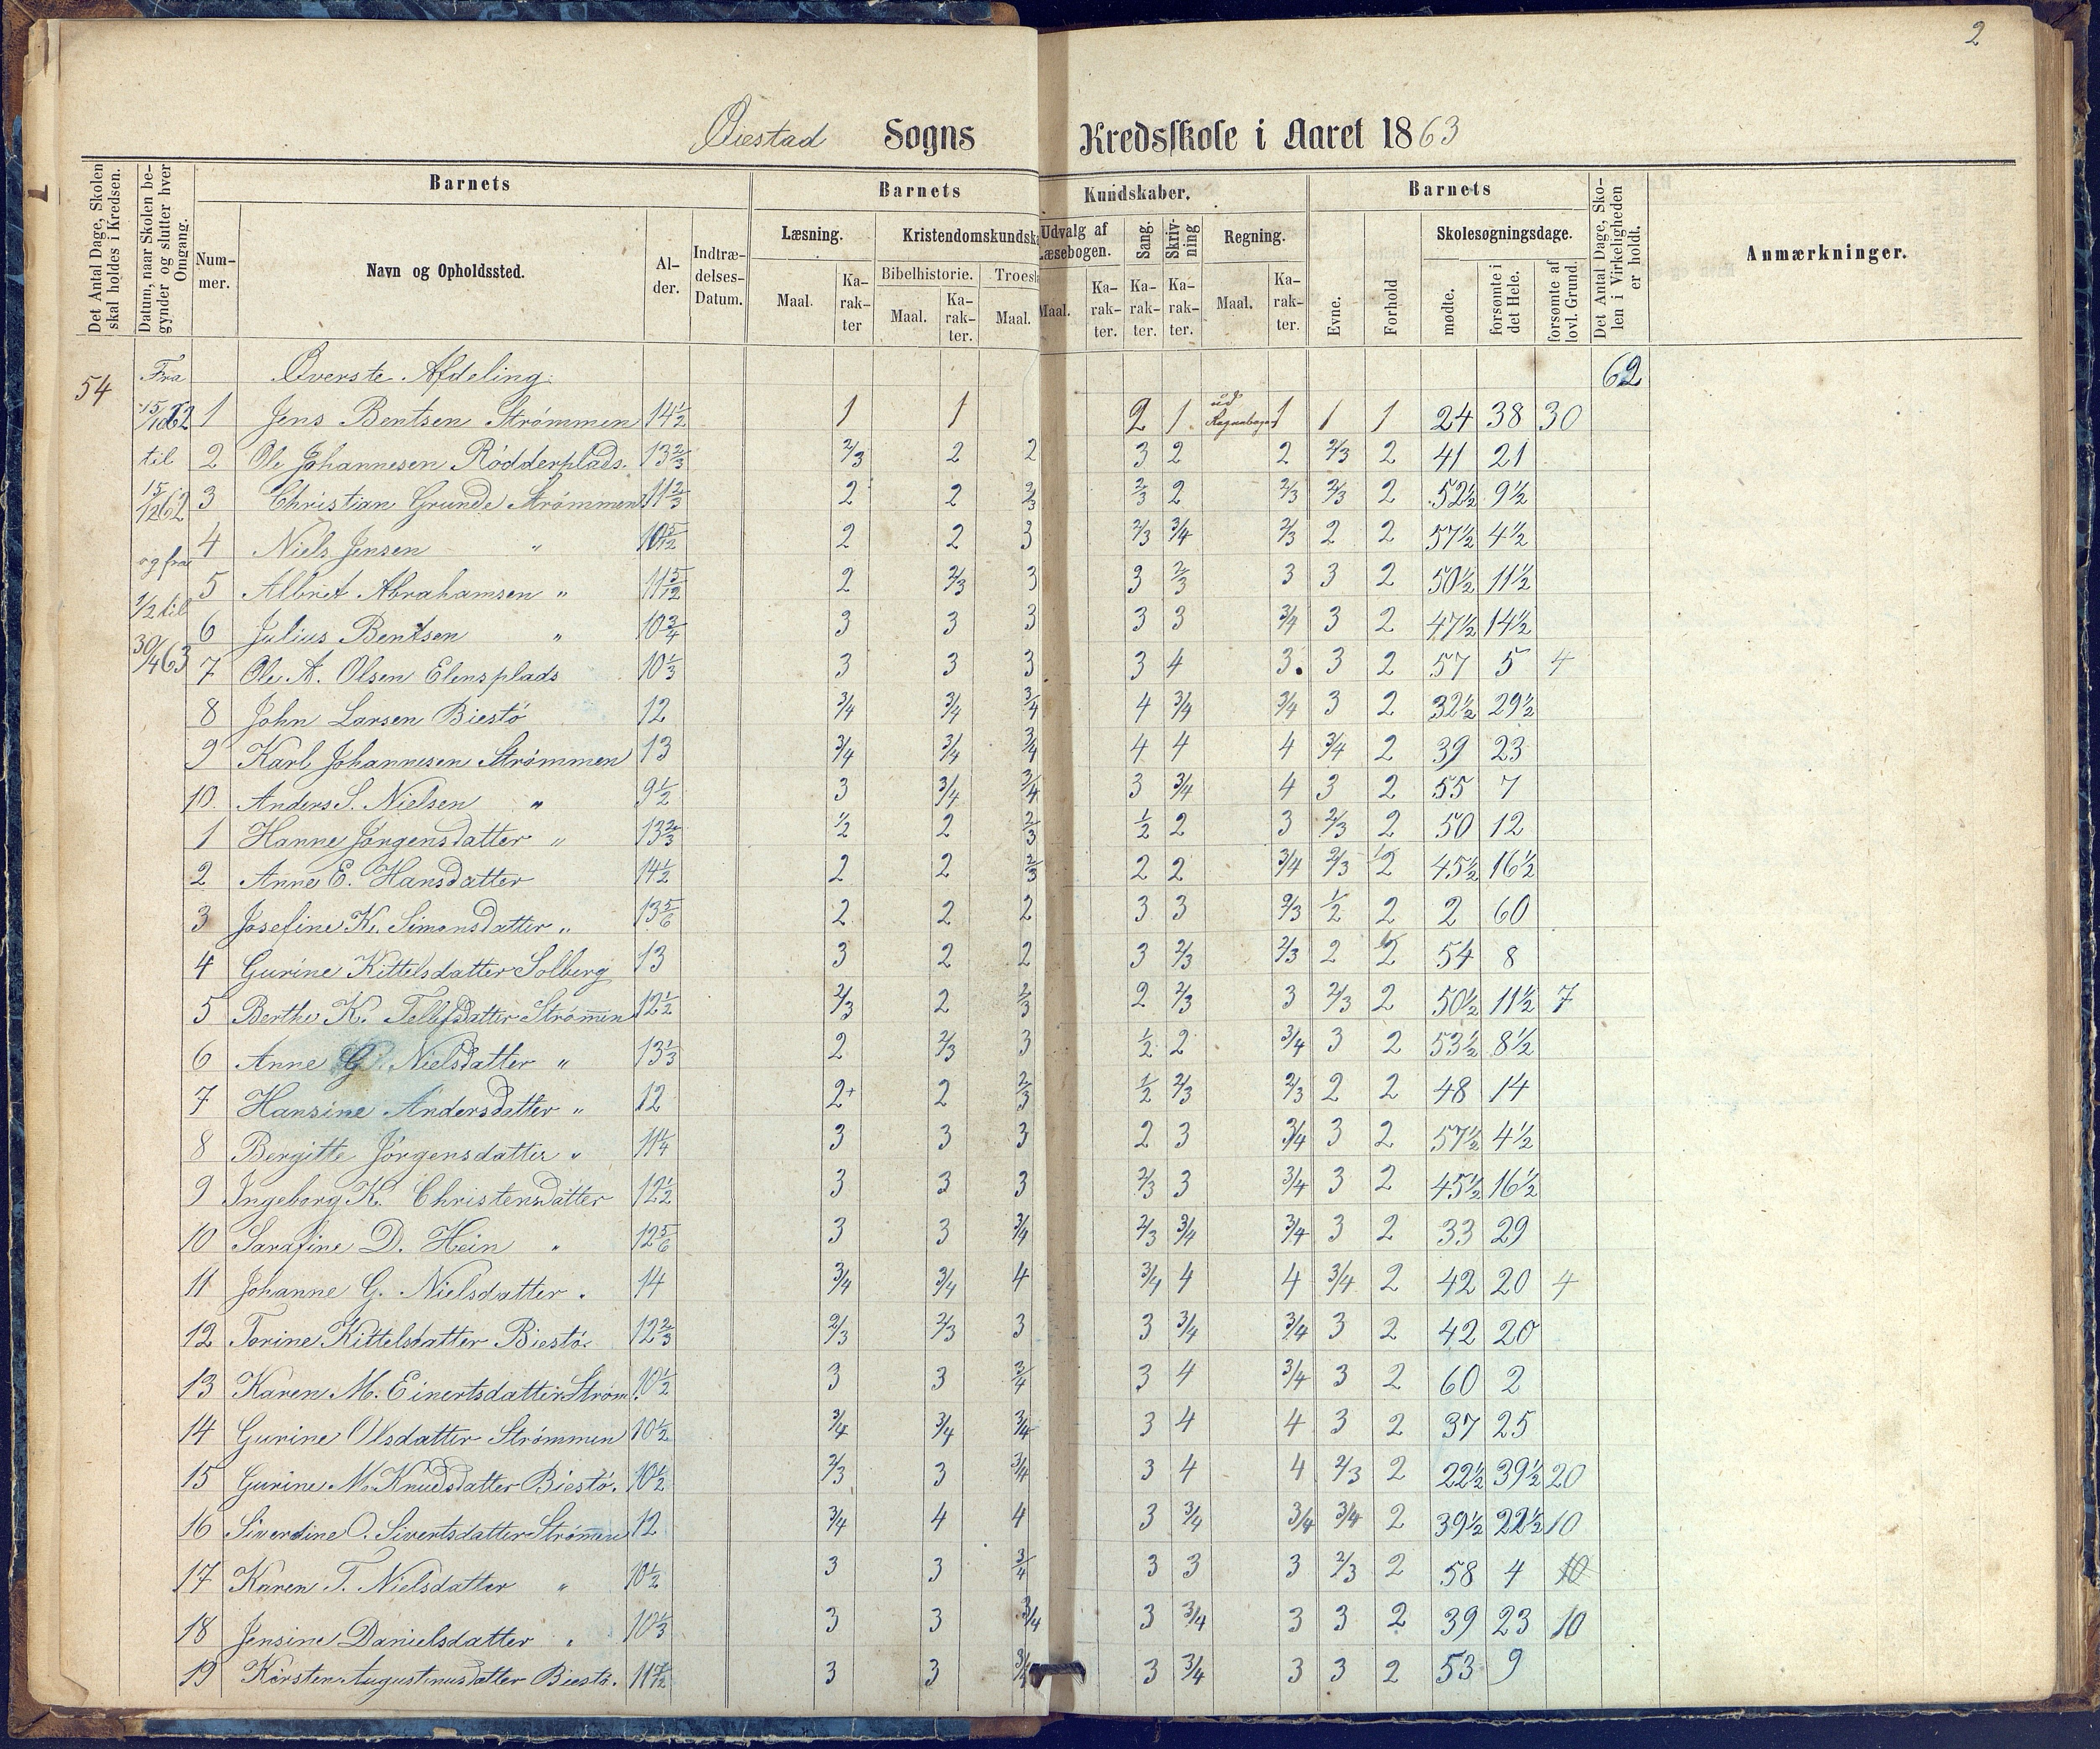 2
Øiestad Sogns Kredsskole i Aaret 1863
Det Antal Dage, Skolen skal holdes i Kredsen.
Datum, naar Skolen begynder og slutter hver Omgang.
Barnets
Num-mer.
Navn og Opholdssted.
Al-der.
Indtræ-delses-Datum.
Barnets Kundskaber.
Læsning.
Maal.
Ka-rak-ter
Kristendomskundsk
Bibelhistorie.
Maal.
Ka-rak-ter.
Troesl
Maal.
Udvalg af Læsebogen.
Maal.
Ka-rak-ter.
Sang.
Ka-rak-ter.
Skriv-ning
Ka-rak-ter.
Regning.
Maal.
Ka-rak-ter.
Barnets
Evne.
Forhold
Skolesøgningsdage.
mødte.
forsømte i det Hele.
forsømte af lovl. Grund.
Det Antal Dage, Sko-len i Virkeligheden er holdt.
Anmærkninger.
54 Fra Øverste Afdeling. 62
15/10 62 1 Jens Bentsen Strømmen 14 1/2 1 1 2 1 ud Regnebogen 1 1 1 24 38 30
til 2 Ole Johannesen Rödderplads. 13 2/3 2/3 2 2 3 2 2 2/3 2 41 21
15/12 62 3 Christian Grunde Strømmen 11 2/3 2 2 2/3 2/3 2 2/3 2/3 2 52 1/2 9 1/2
4 Niels Jensen " 10 5/12 2 2 3 2/3 3/4 2/3 2 2 57 1/2 4 1/2
og fra 5 Albret Abrahamsen " 11 5/12 2 2/3 3 3 2/3 3 3 2 50 1/2 11 1/2
1/2 til 6 Julius Bentsen " 10 3/4 3 3 3 3 3 3/4 3 2 47 1/2 14 1/2
30/4 63 7 Ole A. Olsen Elensplads 10 1/3 3 3 3 3 4 3. 3 2 57 5 4
8 John Larsen Biestö 12 3/4 3/4 3/4 4 3/4 3/4 3 2 32 1/2 29 1/2
9 Karl Johannesen Strømmen 13 3/4 3/4 3/4 4 4 4 3/4 2 39 23
10. Anders S. Nielsen " 9 1/2 3 3/4 3/4 3 3/4 4 3 2 55 7
1 Hanne Jörgensdatter " 13 2/3 1/2 2 2/3 1/2 2 3 2/3 2 50 12
2 Anne E. Hansdatter 14 1/2 2 2 2/3 2 2 3/4 2/3 1/2 45 1/2 16 1/2
3 Josefine K. Simonsdatter " 13 5/6 2 2 2 3 3 2/3 1/2 2 2 60
4 Gurine Kittelsdatter Solberg 13 3 2 2 3 2/3 2/3 2 2 54 8
5 Berthe K. Tellefsdatter Strömen 12 1/2 2/3 2 2/3 2 2/3 3 2/3 2 50 1/2 11 1/2 7
6 Anne G. Nielsdatter " 13 1/3 2 2/3 3 1/2 2 3/4 3 2 53 1/2 8 1/2
7 Hansine Andersdatter " 12 2+ 2 2/3 1/2 2/3 2/3 2 2 48 14
8 Bergitte Jörgensdatter " 11 1/4 3 3 3 2 3 3/4 3 2 57 1/2 4 1/2
9 Ingeborg K. Christensdatter 12 1/2 3 3 3 2/3 3 3/4 3 2 45 1/2 16 1/2
10 Sarafine D. Hein " 12 5/6 3 3 3/4 2/3 3/4 3/4 3 2 33 29
11 Johanne G. Nielsdatter " 14 3/4 3/4 4 3/4 4 4 3/4 2 42 20 4
12 Torine Kittelsdatter Biestö. 12 2/3 2/3 2/3 3 3 3/4 3/4 3 2 42 20
13 Karen M. Einertsdatter Ström. 10 1/2 3 3 3/4 3 4 3/4 3 2 60 2
14 Gurine Olsdatter Strömmen 10 1/2 3/4 3/4 3/4 3 4 4 3 2 37 25
15 Gurine M. Knudsdatter Biestö. 10 1/2 2/3 3 3/4 3 4 4 2/3 2 22 1/2 39 1/2 20
16 Siverdine O. Sivertsdatter Strömen 12 3/4 4 4 3 3/4 3/4 3/4 2 39 1/2 22 1/2 10
17 Karen T. Nielsdatter " 10 1/2 3 3 3/4 3 3 3 2/3 2 58 4 10
18 Jensine Danielsdatter " 10 1/3 3 3 3/4 3 3/4 3 3 2 39 23 10
19 Kirsten Augustinusdatter Biestö. 11 7/12 3 3 3/4 3 3/4 3 3 2 53 9